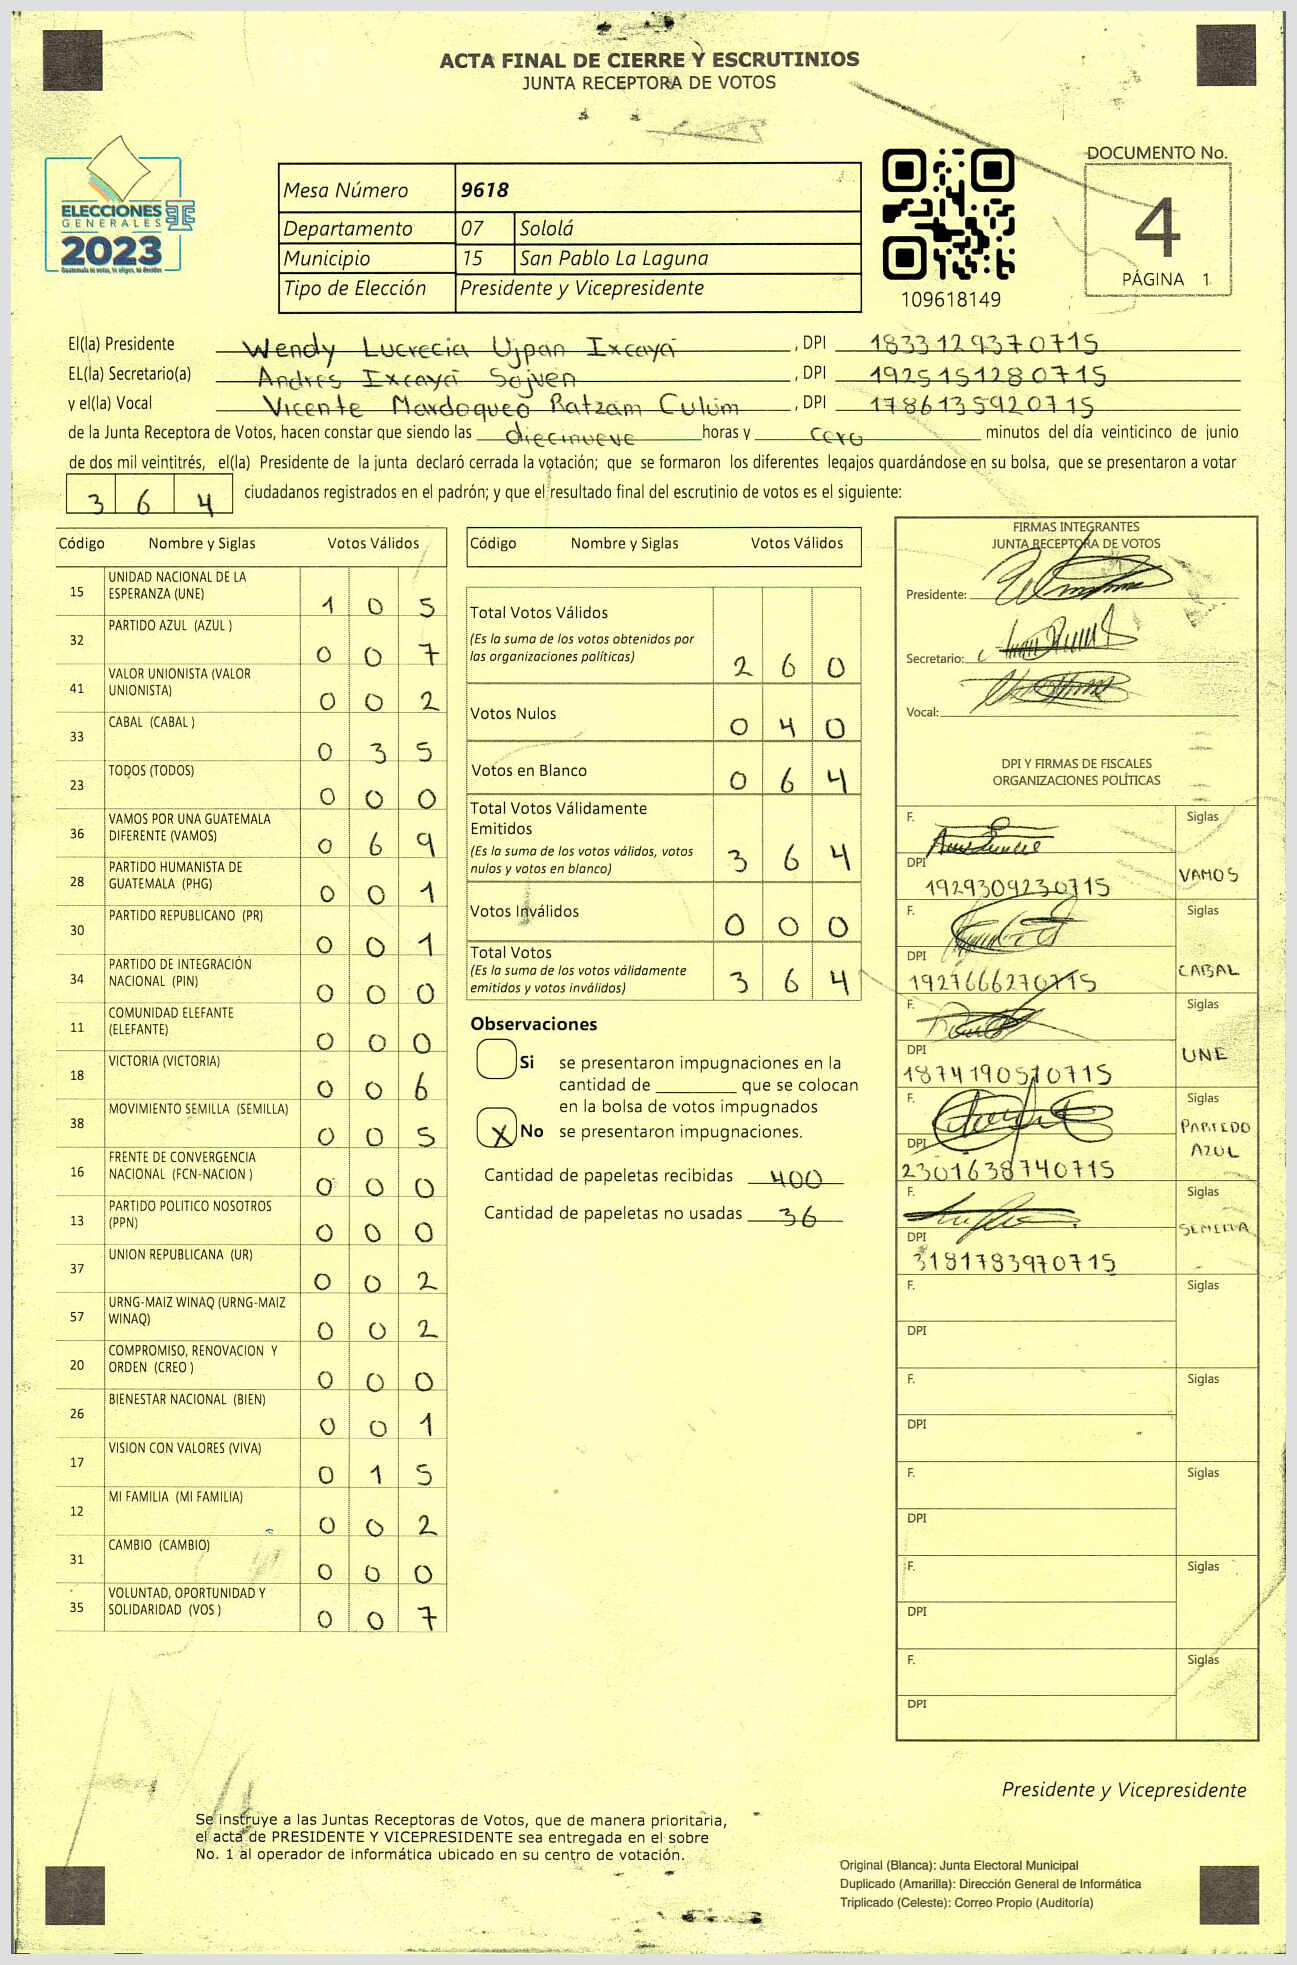 ACTA FINAL DE CIERRE Y ESCRUTINIOS
JUNTA RECEPTORA DE VOTOS
ELECCIONES
GENERALES
2023
Guatemala tú votas, tú eliges, tú decides
Mesa Número 9618
Departamento 07 Sololá
Municipio 15 San Pablo La Laguna
Tipo de Elección Presidente y Vicepresidente
109618149
DOCUMENTO No.
4
PÁGINA 1
El(la) Presidente Wendy Lucrecia Ujpan Ixcayá , DPI 1833129370715
EL(la) Secretario(a) Andres Ixcayá Sojven , DPI 1925151280715
y el(la) Vocal Vicente Mardoqueo Ratzam Culum , DPI 1786135920715
de la Junta Receptora de Votos, hacen constar que siendo las diecinueve horas y cero minutos del día veinticinco de junio
de dos mil veintitrés, el(la) Presidente de la junta declaró cerrada la votación; que se formaron los diferentes legajos guardándose en su bolsa, que se presentaron a votar
3 6 4 ciudadanos registrados en el padrón; y que el resultado final del escrutinio de votos es el siguiente:
Código Nombre y Siglas Votos Válidos
15 UNIDAD NACIONAL DE LA
ESPERANZA (UNE) 1 0 5
32 PARTIDO AZUL (AZUL ) 0 0 7
41 VALOR UNIONISTA (VALOR
UNIONISTA) 0 0 2
33 CABAL (CABAL ) 0 3 5
23 TODOS (TODOS) 0 0 0
36 VAMOS POR UNA GUATEMALA
DIFERENTE (VAMOS) 0 6 9
28 PARTIDO HUMANISTA DE
GUATEMALA (PHG) 0 0 1
30 PARTIDO REPUBLICANO (PR) 0 0 1
34 PARTIDO DE INTEGRACIÓN
NACIONAL (PIN) 0 0 0
11 COMUNIDAD ELEFANTE
(ELEFANTE) 0 0 0
18 VICTORIA (VICTORIA) 0 0 6
38 MOVIMIENTO SEMILLA (SEMILLA) 0 0 5
16 FRENTE DE CONVERGENCIA
NACIONAL (FCN-NACION ) 0 0 0
13 PARTIDO POLITICO NOSOTROS
(PPN) 0 0 0
37 UNION REPUBLICANA (UR) 0 0 2
57 URNG-MAIZ WINAQ (URNG-MAIZ
WINAQ) 0 0 2
20 COMPROMISO, RENOVACION Y
ORDEN (CREO ) 0 0 0
26 BIENESTAR NACIONAL (BIEN) 0 0 1
17 VISION CON VALORES (VIVA) 0 1 5
12 MI FAMILIA (MI FAMILIA) 0 0 2
31 CAMBIO (CAMBIO) 0 0 0
35 VOLUNTAD, OPORTUNIDAD Y
SOLIDARIDAD (VOS ) 0 0 7
Código Nombre y Siglas Votos Válidos
Total Votos Válidos
(Es la suma de los votos obtenidos por
las organizaciones políticas) 2 6 0
Votos Nulos 0 4 0
Votos en Blanco 0 6 4
Total Votos Válidamente
Emitidos
(Es la suma de los votos válidos, votos
nulos y votos en blanco) 3 6 4
Votos Inválidos 0 0 0
Total Votos
(Es la suma de los votos válidamente
emitidos y votos inválidos) 3 6 4
Observaciones
Si se presentaron impugnaciones en la
cantidad de ________ que se colocan
en la bolsa de votos impugnados
X No se presentaron impugnaciones.
Cantidad de papeletas recibidas 400
Cantidad de papeletas no usadas 36
FIRMAS INTEGRANTES
JUNTA RECEPTORA DE VOTOS
Presidente:
Secretario:
Vocal:
DPI Y FIRMAS DE FISCALES
ORGANIZACIONES POLÍTICAS
F. Siglas
DPI 1929309230715 VAMOS
F. Siglas
DPI 1927666270715 CABAL
F. Siglas
DPI 1874190510715 UNE
F. Siglas
DPI 2301638740715 PARTIDO AZUL
F. Siglas
DPI 3181783970715 SEMILLA
F. Siglas
DPI
F. Siglas
DPI
F. Siglas
DPI
F. Siglas
DPI
F. Siglas
DPI
Presidente y Vicepresidente
Se instruye a las Juntas Receptoras de Votos, que de manera prioritaria,
el acta de PRESIDENTE Y VICEPRESIDENTE sea entregada en el sobre
No. 1 al operador de informática ubicado en su centro de votación.
Original (Blanca): Junta Electoral Municipal
Duplicado (Amarilla): Dirección General de Informática
Triplicado (Celeste): Correo Propio (Auditoría)